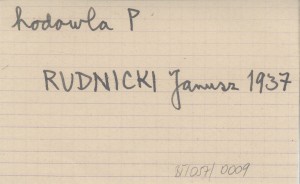 hodowla P
RUDNICKI Janusz 1937
VI 057/0009